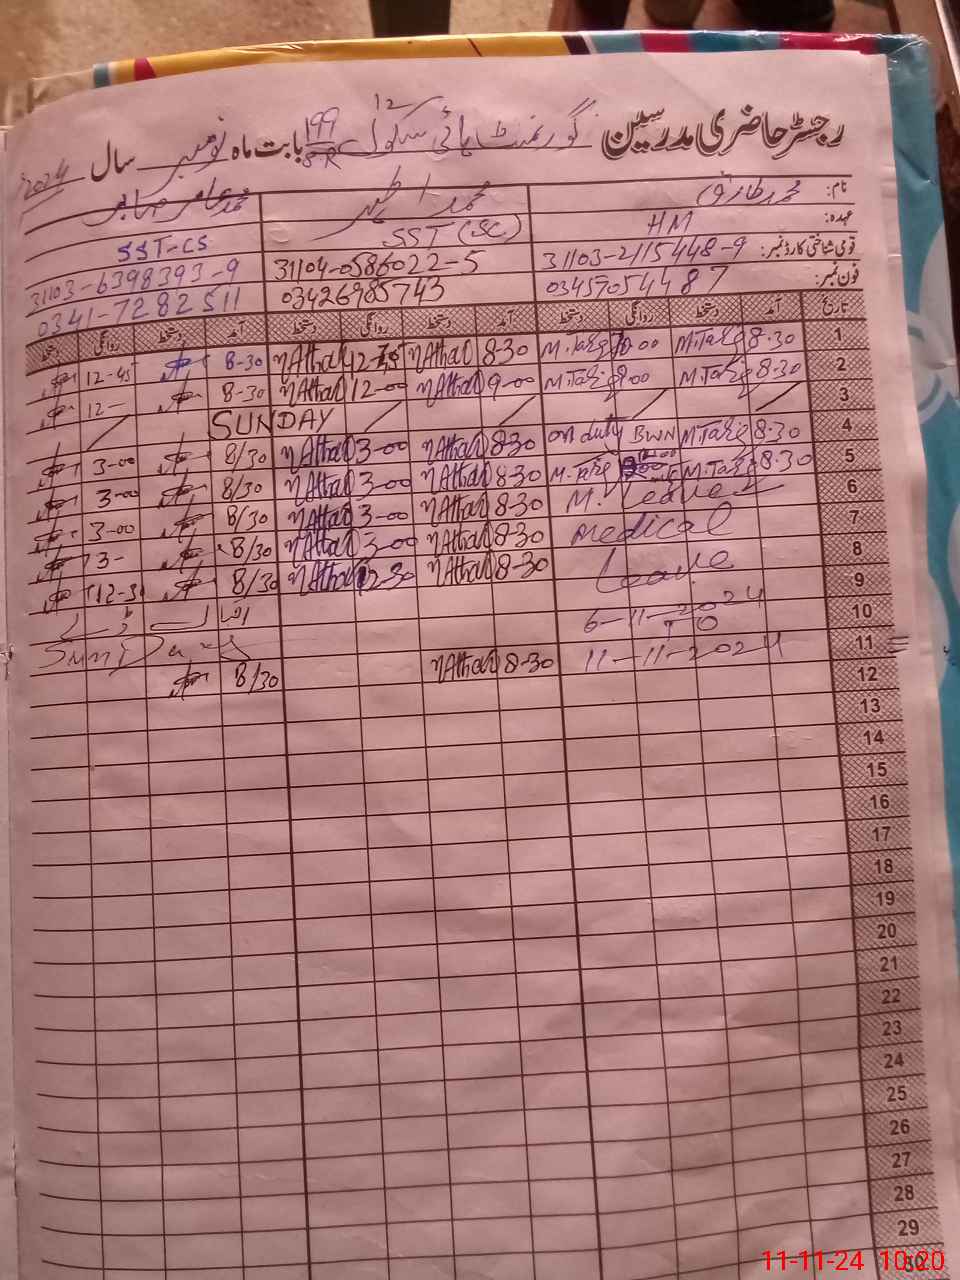 رجسٹر حاضری مدرسین گورنمنٹ ہائی سکول 199/5R بابت ماہ نومبر سال 2024
نام: محمد طارق محمد اطہر محمد عامر صابر
عہدہ: HM SST (SC) SST-CS
قومی شناختی کارڈ نمبر: 31103-2115448-9 31104-0586022-5 31103-6398393-9
فون نمبر: 03457054487 03426985743 0341-7282511
تاریخ آمد دستخط روانگی دستخط آمد دستخط روانگی دستخط آمد دستخط روانگی دستخط
1 8.30 M.Tariq M.Tariq 8-30 MAthar 12-45 MAthar 8-30 12-45
2 8.30 M.Tariq M.Tariq 9-00 MAthar 12-00 MAthar 8-30 12-
3 SUNDAY
4 8.30 M.Tariq BWN on duty 8-30 MAthar 3-00 MAthar 8/30 3-00
5 8.30 M.Tariq M.Tariq 8-30 MAthar 3-00 MAthar 8/30 3-00
6 M. Leave 8-30 MAthar 3-00 MAthar 8/30 3-00
7 medical 8-30 MAthar 3-00 MAthar 8/30 3-
8 Leave 8-30 MAthar 12-30 MAthar 8/30 12-30
9 6-11-2024 اقبال ڈے
10 TO Sunday
11 11-11-2024 8-30 MAthar 8/30
12
13
14
15
16
17
18
19
20
21
22
23
24
25
26
27
28
29
30
11-11-24 10:20